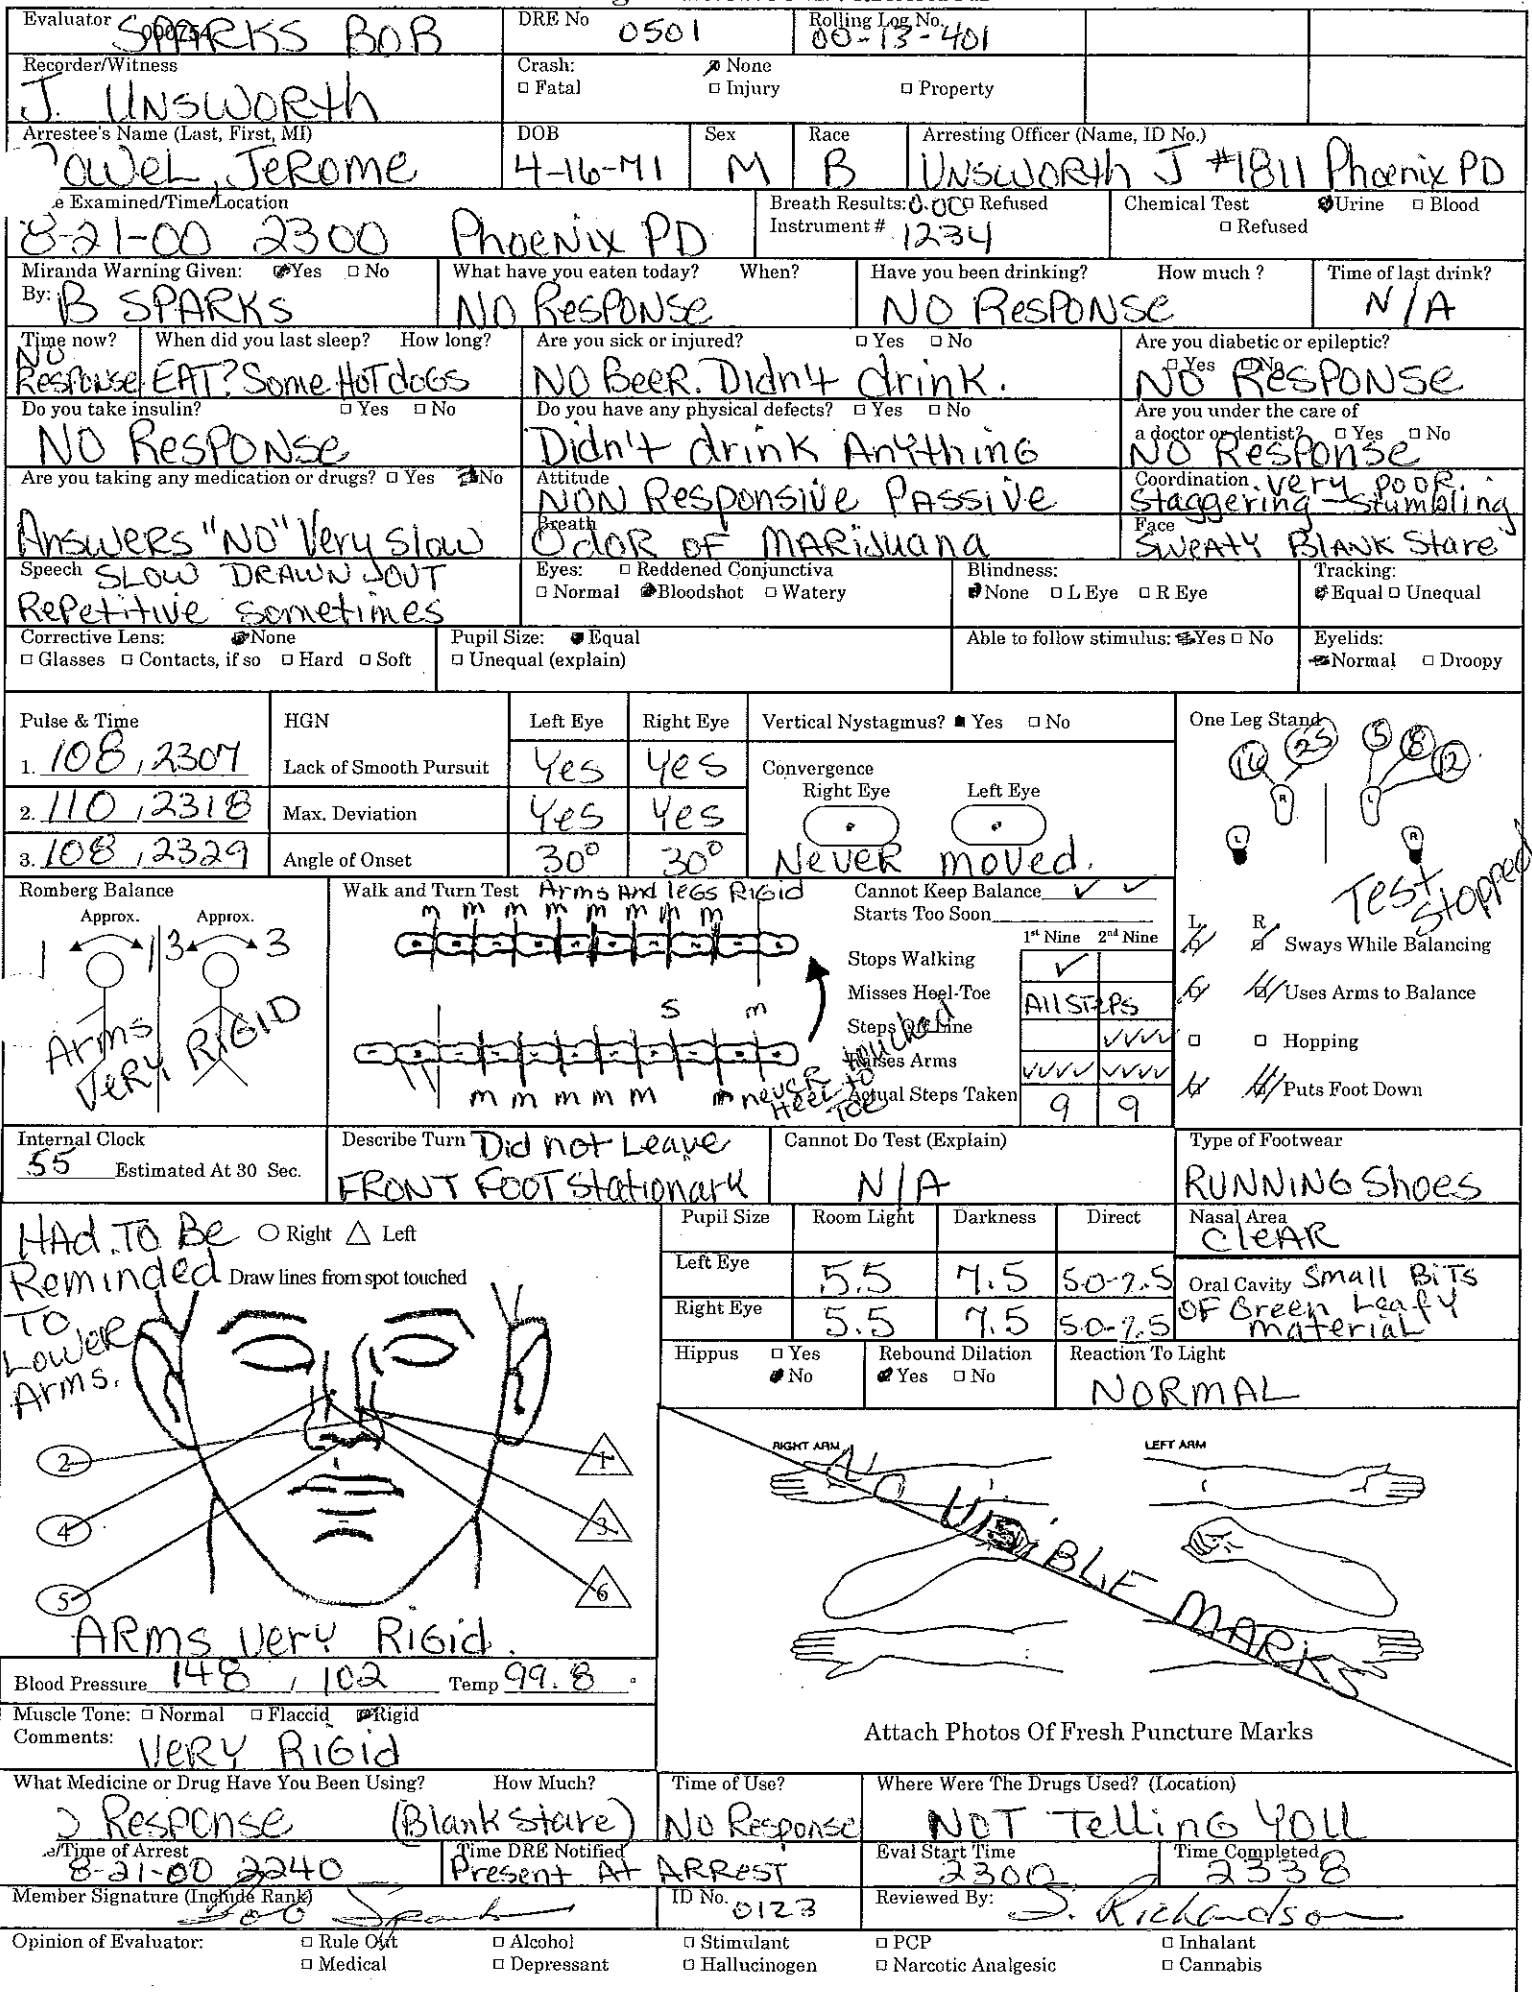 Evaluator SPARKS BOB
DRE No 0501
Rolling Log No. 00-13-401
Recorder/Witness J. UNSWORTH
Crash: None
Fatal Injury Property
Arrestee's Name (Last, First, MI) OWEL, JEROME
DOB 4-16-71
Sex M
Race B
Arresting Officer (Name, ID No.) UNSWORTH J #1811 Phoenix PD
e Examined/Time/Location 8-21-00 2300 Phoenix PD
Breath Results: 0.00 Refused
Instrument # 1234
Chemical Test Urine Blood
Refused
Miranda Warning Given: Yes No
By: B SPARKS
What have you eaten today? When?
NO RESPONSE
Have you been drinking? How much ?
NO RESPONSE
Time of last drink?
N/A
Time now?
NO RESPONSE
When did you last sleep? How long?
EAT? Some HOT doGS
Are you sick or injured? Yes No
NO BeeR. Didn't drink.
Are you diabetic or epileptic?
Yes No
NO RESPONSE
Do you take insulin? Yes No
NO RESPONSE
Do you have any physical defects? Yes No
Didn't drink Anything
Are you under the care of
a doctor or dentist? Yes No
NO Response
Are you taking any medication or drugs? Yes No
Answers "NO" Very Slow
Attitude
NON Responsive PASSIVE
Coordination very pooR.
Staggering - Stumbling
Breath
OdoR OF MARiJuana
Face
SWEATY BLANK Stare
Speech SLOW DRAWN OUT
Repetitive sometimes
Eyes: Reddened Conjunctiva
Normal Bloodshot Watery
Blindness:
None L Eye R Eye
Tracking:
Equal Unequal
Corrective Lens: None
Glasses Contacts, if so Hard Soft
Pupil Size: Equal
Unequal (explain)
Able to follow stimulus: Yes No
Eyelids:
Normal Droopy
Pulse & Time
1. 108, 2307
2. 110, 2318
3. 108, 2329
HGN Left Eye Right Eye
Lack of Smooth Pursuit Yes Yes
Max. Deviation Yes Yes
Angle of Onset 30° 30°
Vertical Nystagmus? Yes No
Convergence
Right Eye Left Eye
Never moved.
One Leg Stand
16 25 5 8 12
R L
L R
Test Stopped
L R
Sways While Balancing
Uses Arms to Balance
Hopping
Puts Foot Down
Romberg Balance
Approx. Approx.
1 1 3 3
Arms Very RIGID
Walk and Turn Test Arms And legs Rigid
m m m m m m m m
S m
m m m m m m never touched Heel to Toe
Cannot Keep Balance
Starts Too Soon
1st Nine 2nd Nine
Stops Walking
Misses Heel-Toe All STEPS
Steps Off Line
Raises Arms
Actual Steps Taken 9 9
Internal Clock
55 Estimated At 30 Sec.
Describe Turn Did not Leave
FRONT FOOT Stationary
Cannot Do Test (Explain)
N/A
Type of Footwear
RUNNING Shoes
HAd To Be Reminded To Lower Arms.
Right Left
Draw lines from spot touched
2 1
4 3
5 6
ARms very Rigid.
Pupil Size Room Light Darkness Direct
Left Eye 5.5 7.5 5.0-7.5
Right Eye 5.5 7.5 5.0-7.5
Nasal Area
CleAR
Oral Cavity Small BiTs
OF Green Leafy
material
Hippus Yes
No
Rebound Dilation
Yes No
Reaction To Light
NORMAL
RIGHT ARM LEFT ARM
NO VISIBLE MARKS
Attach Photos Of Fresh Puncture Marks
Blood Pressure 148 / 102 Temp 99.8 °
Muscle Tone: Normal Flaccid Rigid
Comments: VERY RIGid
What Medicine or Drug Have You Been Using? How Much?
Response (Blank stare)
Time of Use?
No Response
Where Were The Drugs Used? (Location)
NOT Telling YOU
e/Time of Arrest
8-21-00 2240
Time DRE Notified
Present At ARREST
Eval Start Time
2300
Time Completed
2338
Member Signature (Include Rank)
Bob Spark
ID No. 0123
Reviewed By: S. Richardson
Opinion of Evaluator: Rule Out Alcohol Stimulant PCP Inhalant
Medical Depressant Hallucinogen Narcotic Analgesic Cannabis